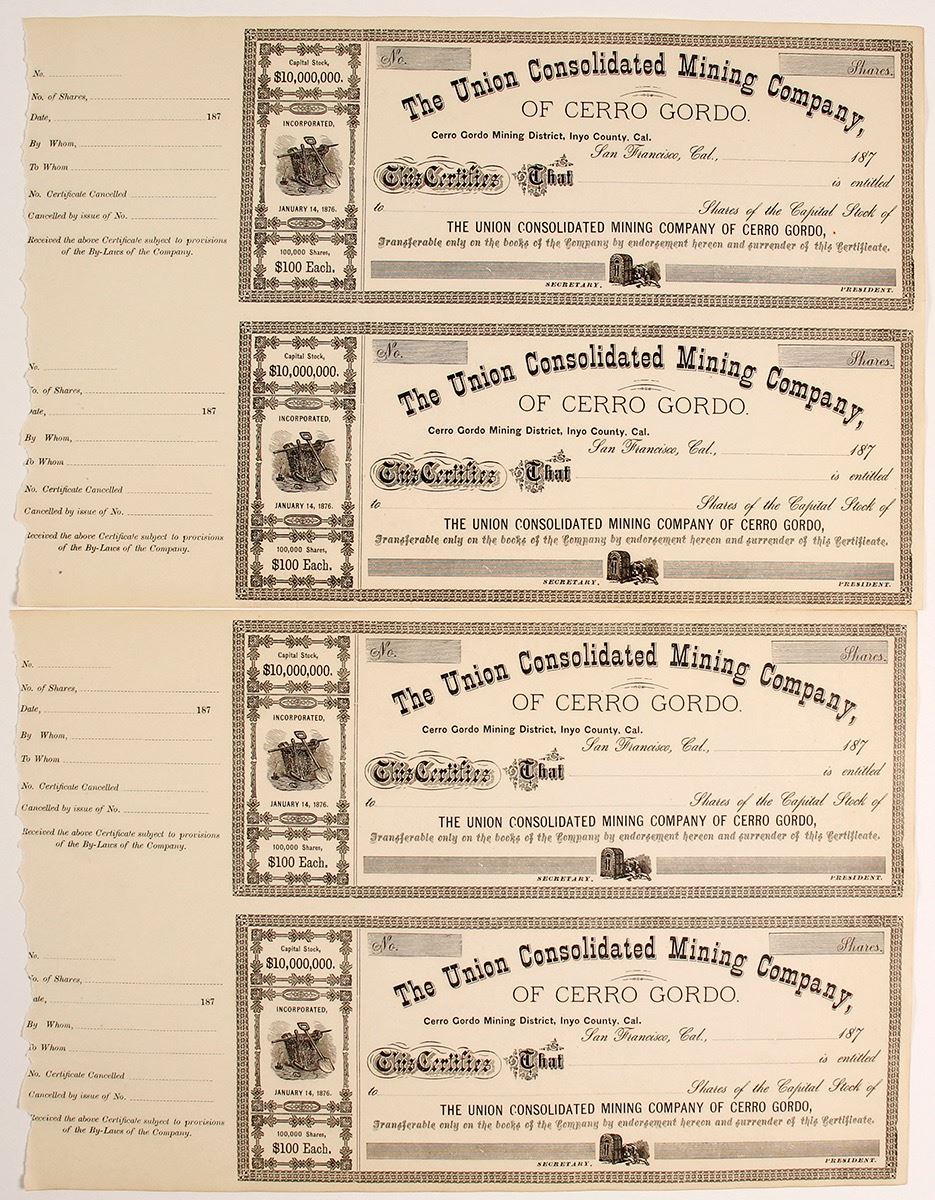 No.
No. of Shares,
Date, 187
By Whom,
To Whom
No. Certificate Cancelled
Cancelled by issue of No.
Received the above Certificate subject to provisions
of the By-Laws of the Company.
Capital Stock,
$10,000,000.
INCORPORATED,
JANUARY 14, 1876.
100,000 Shares,
$100 Each.
No. Shares.
The Union Consolidated Mining Company,
OF CERRO GORDO.
Cerro Gordo Mining District, Inyo County, Cal.
San Francisco, Cal., 187
This Certifies That is entitled
to Shares of the Capital Stock of
THE UNION CONSOLIDATED MINING COMPANY OF CERRO GORDO,
Transferable only on the books of the Company by endorsement hereon and surrender of this Certificate.
SECRETARY. PRESIDENT.
No.
o. of Shares,
ate, 187
By Whom,
To Whom
No. Certificate Cancelled
Cancelled by issue of No.
Received the above Certificate subject to provisions
of the By-Laws of the Company.
Capital Stock,
$10,000,000.
INCORPORATED,
JANUARY 14, 1876.
100,000 Shares,
$100 Each.
No. Shares.
The Union Consolidated Mining Company,
OF CERRO GORDO.
Cerro Gordo Mining District, Inyo County, Cal.
San Francisco, Cal., 187
This Certifies That is entitled
to Shares of the Capital Stock of
THE UNION CONSOLIDATED MINING COMPANY OF CERRO GORDO,
Transferable only on the books of the Company by endorsement hereon and surrender of this Certificate.
SECRETARY. PRESIDENT.
No.
No. of Shares,
Date, 187
By Whom,
To Whom
No. Certificate Cancelled
Cancelled by issue of No.
Received the above Certificate subject to provisions
of the By-Laws of the Company.
Capital Stock,
$10,000,000.
INCORPORATED,
JANUARY 14, 1876.
100,000 Shares,
$100 Each.
No. Shares.
The Union Consolidated Mining Company,
OF CERRO GORDO.
Cerro Gordo Mining District, Inyo County, Cal.
San Francisco, Cal., 187
This Certifies That is entitled
to Shares of the Capital Stock of
THE UNION CONSOLIDATED MINING COMPANY OF CERRO GORDO,
Transferable only on the books of the Company by endorsement hereon and surrender of this Certificate.
SECRETARY. PRESIDENT.
No.
o. of Shares,
ate, 187
By Whom,
To Whom
No. Certificate Cancelled
Cancelled by issue of No.
Received the above Certificate subject to provisions
of the By-Laws of the Company.
Capital Stock,
$10,000,000.
INCORPORATED,
JANUARY 14, 1876.
100,000 Shares,
$100 Each.
No. Shares.
The Union Consolidated Mining Company,
OF CERRO GORDO.
Cerro Gordo Mining District, Inyo County, Cal.
San Francisco, Cal., 187
This Certifies That is entitled
to Shares of the Capital Stock of
THE UNION CONSOLIDATED MINING COMPANY OF CERRO GORDO,
Transferable only on the books of the Company by endorsement hereon and surrender of this Certificate.
SECRETARY. PRESIDENT.